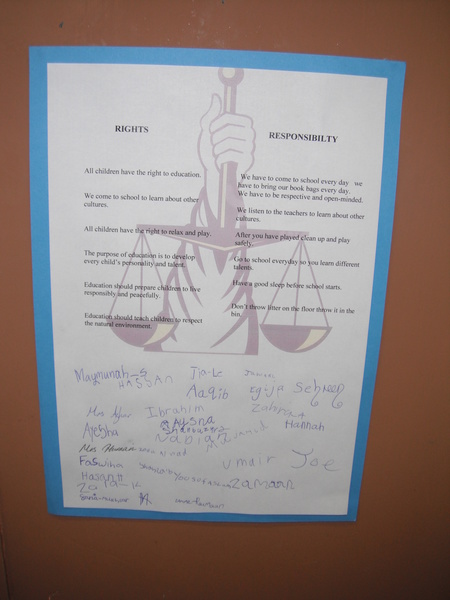 RIGHTS
All children have the right to education.
We come to school to learn about other
cultures.
All children have the right to relax and play.
The purpose of education is to develop
every child's personality and talent.
Education should prepare children to live
responsibly and peacefully.
Education should teach children to respect
the natural environment.
RESPONSIBILTY
We have to come to school every day we
have to bring our book bags every day.
We have to be respective and open-minded.
We listen to the teachers to learn about other
cultures.
After you have played clean up and play
safely.
Go to school everyday so you learn different
talents.
Have a good sleep before school starts.
Don't throw litter on the floor throw it in the
bin.
Maymunah-S
HASSAN
Aaqib
Ibrahim
Hannah
Nabiah
Mrs
Umair
Joe
Zamaan
Hasan